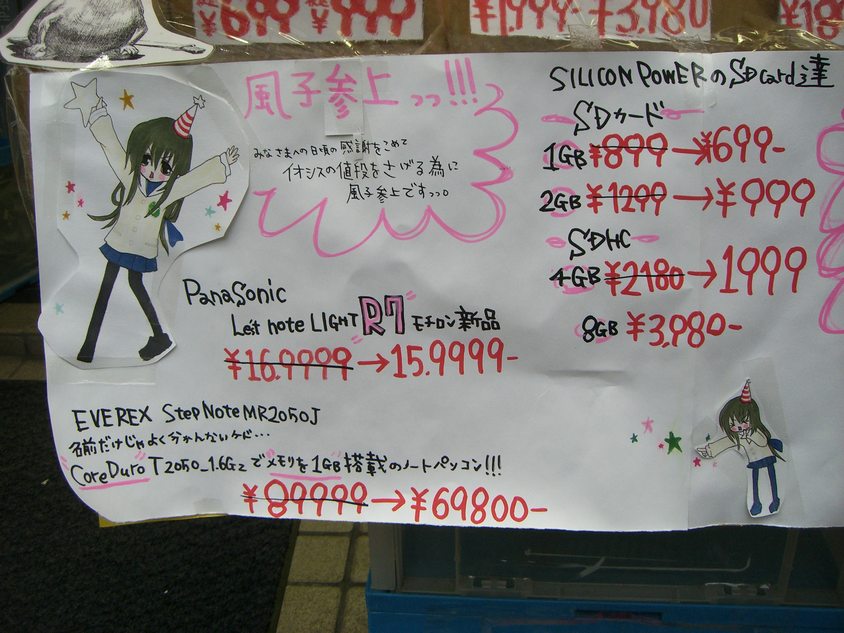 ¥699 ¥999
¥1,999 ¥3,980
風子参上っっ!!!
みなさまへの日頃の感謝をこめて
イオシスの値段をさげる為に
風子参上ですっっ。
Panasonic
Let's note LIGHT R7 モチロン新品
¥16.9999→15.9999-
EVEREX StepNote MR2050J
名前だけじゃよく分かんないケド…
CoreDuro T2050_1.6Gz でメモリを1GB搭載のノートパソコン!!!
¥89999→¥69800-
SILICON POWERのSDcard達
SDカード
1GB ¥899→¥699-
2GB ¥1299→¥999
SDHC
4GB ¥2180→1999
8GB ¥3,980-